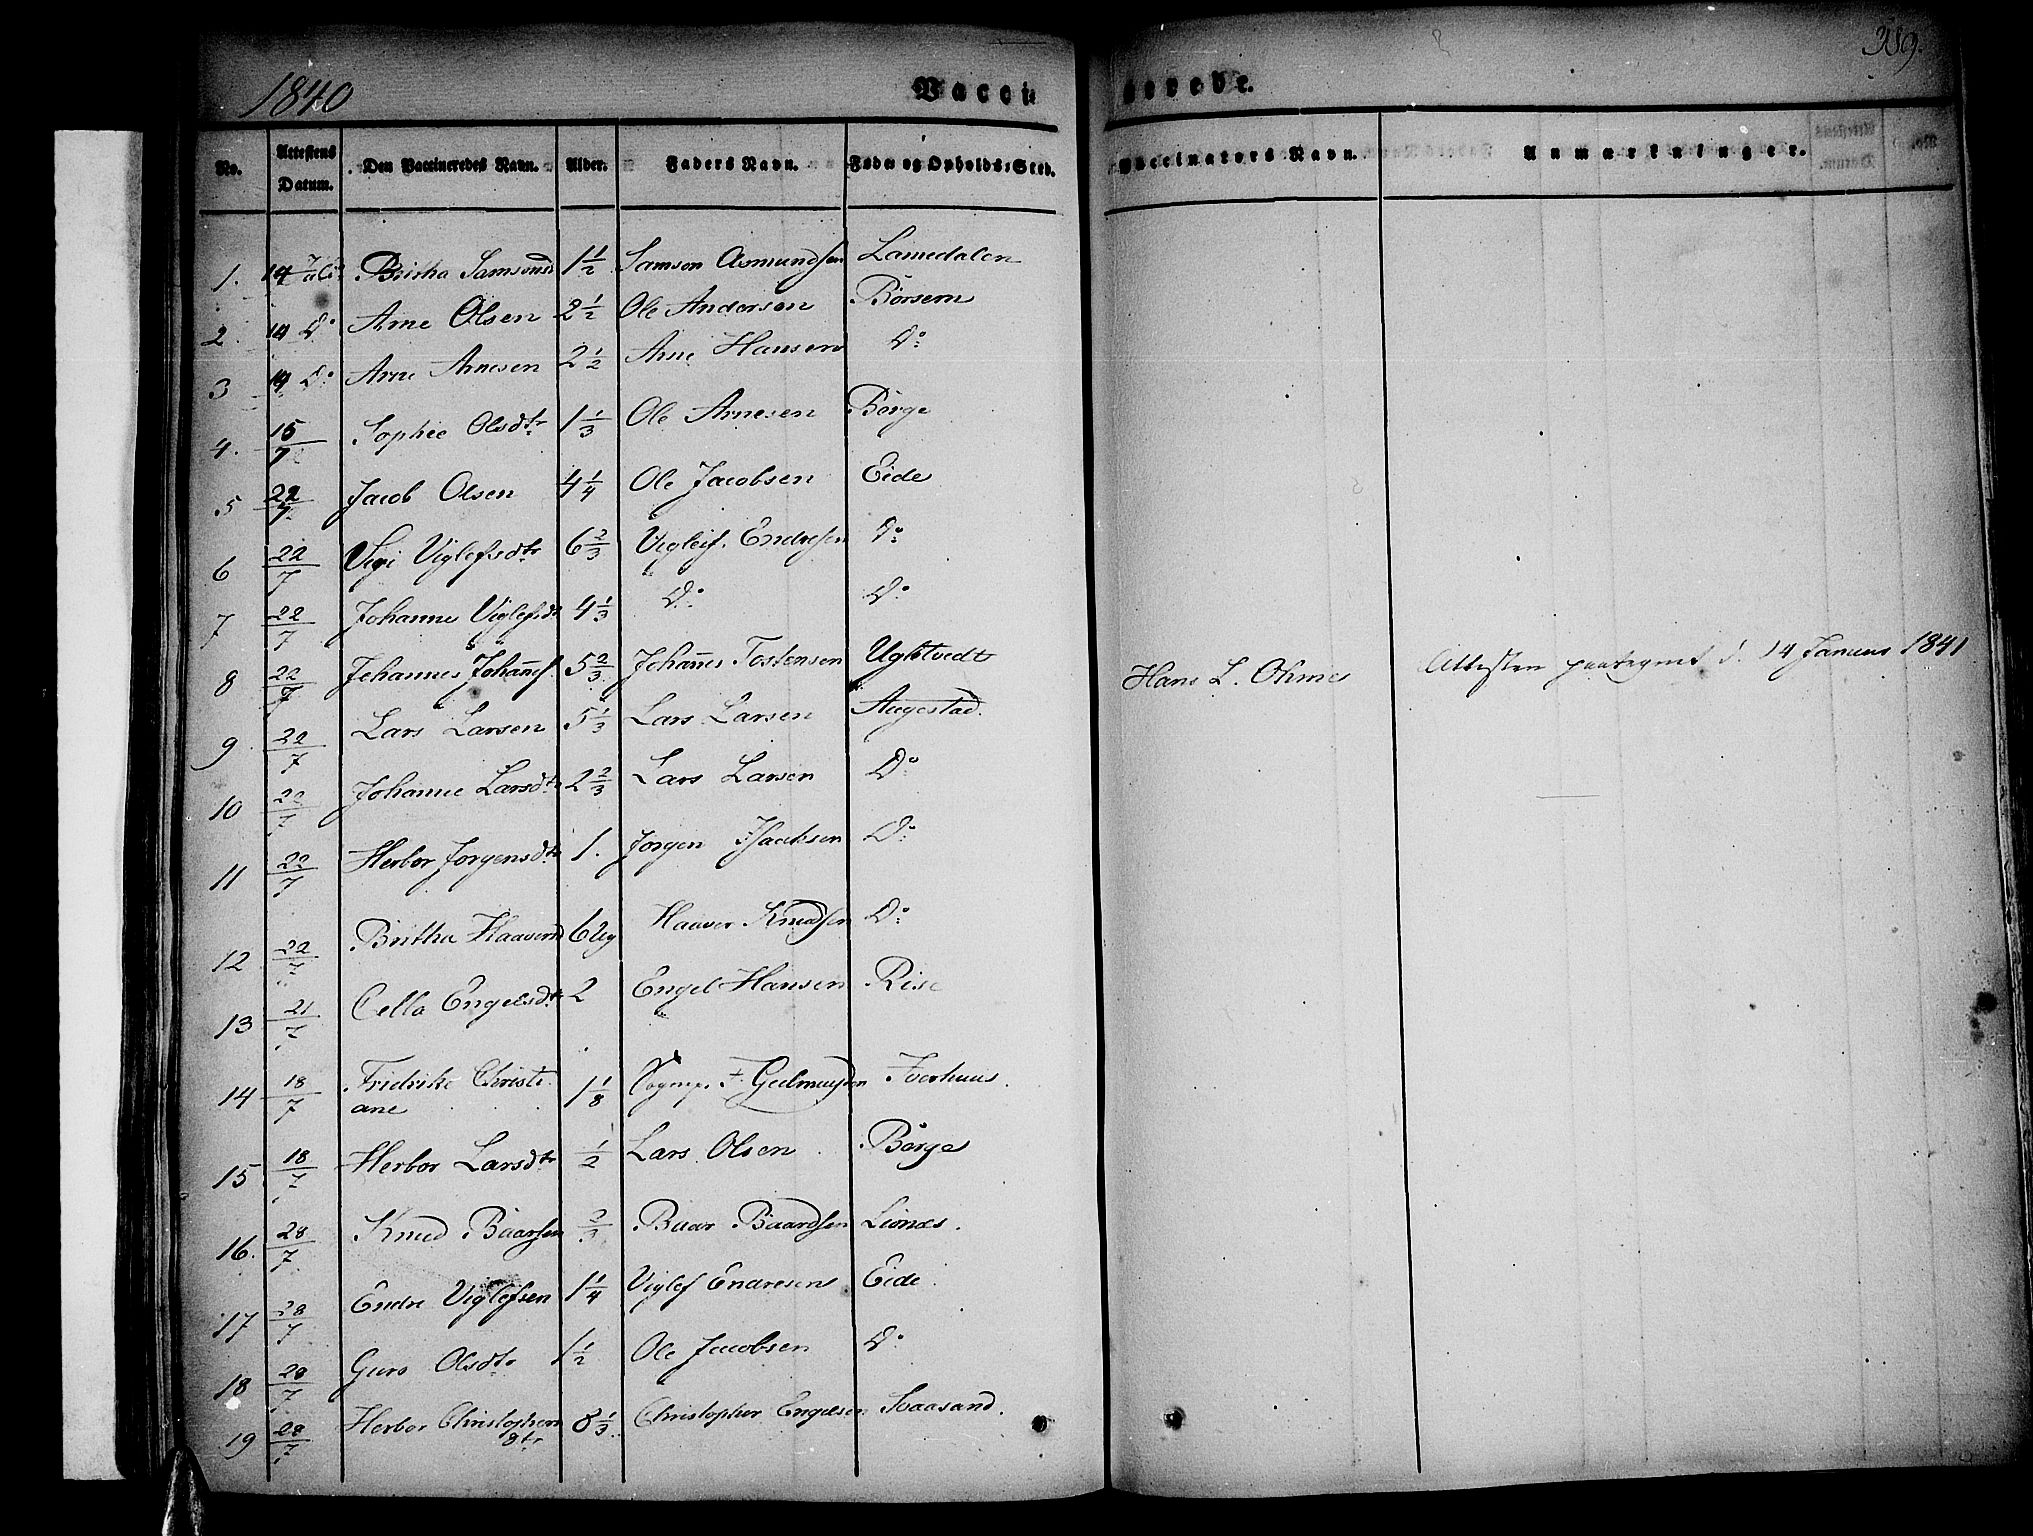 1840 Vaccinerede. 319.
No. Attestens Datum. Den Vaccineredes Navn. Alder. Faders Navn. Føde og Opholds-Sted. Vaccinators Navn. Anmærkninger.
1. 14 Britha Samsonsd 1 1/2 Samson Asmundsen Lamedalen
2. 14 Do Arne Olsen 2 1/2 Ole Andersen Børsem
3 14 Do Arne Arnesen 2 1/2 Arne Hansen Do
4. 15/7 Sophie Olsdtr 1 1/3 Ole Arnesen Børge
5 22/7 Jacob Olsen 4 1/4 Ole Jacobsen Eide
6 22/7 Siri Viglefsdtr 6 2/3 Vigleif Endresen Do
7 22/7 Johanne Viglefsdt 4 1/3 Do Do
8 22/7 Johannes Johanes. 5 2/3 Johanes Tostensen Ugletvedt Hans L. Ohmes Attesten paategnet d. 14 Januar 1841
9 22/7 Lars Larsen 5 1/3 Lars Larsen Augestad.
10 22/7 Johanne Larsdtr 2 2/3 Lars Larsen Do
11 22/7 Herbor Jørgensdtr 1. Jørgen Isaaksen Do
12 22/7 Britha Haaversd 6 Ug Haaver Knudsen Do
13 21/7 Cella Engelsdtr 2 Engel Hansen Rise
14 18/7 Fridrike Christi
ane 1 1/8 F. Geelmuyden Iverhuus.
15 18/7 Herbor Larsdtr 1/2 Lars Olsen Børge
16. 28/7 Knud Baarsen 2/3 Baar Baardsen Lionæs.
17 28/7 Endre Viglefsen 1 1/4 Viglef Endresens Eide
18 28/7 Guro Olsdtr 1 1/2 Ole Jacobsen Do
19 28/7 Herbor Christophers
dtr 8 1/3 Christopher Engelsen Svaasand.